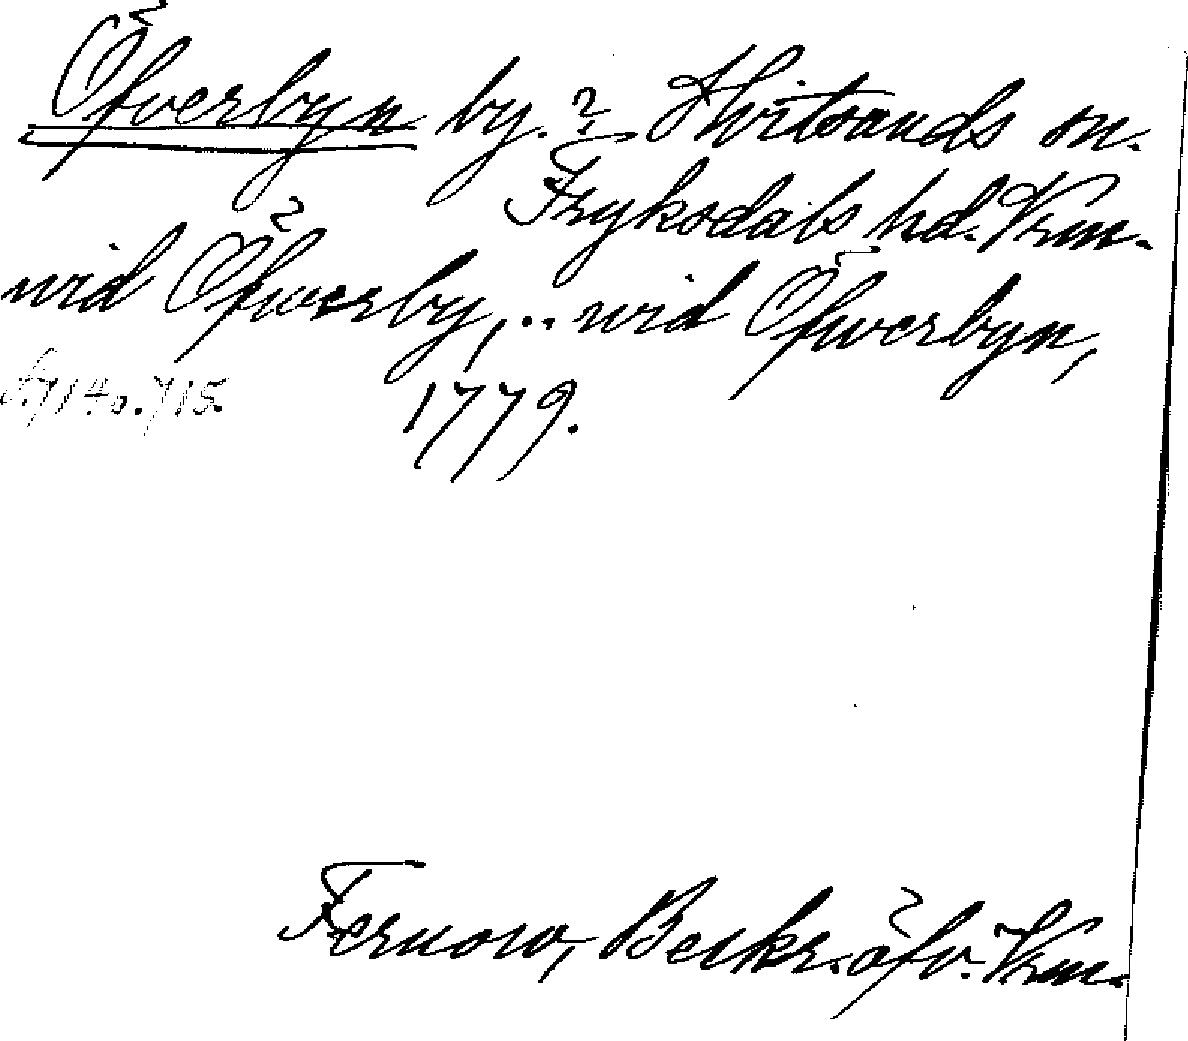 Öfverbyn by. ? Hvitsands sn.
Fryksdals hd. Vrm.
wid Öfwerby, .. wid Öfwerbyn,
1779.
Fernow, Beskr. öfv. Vrm.